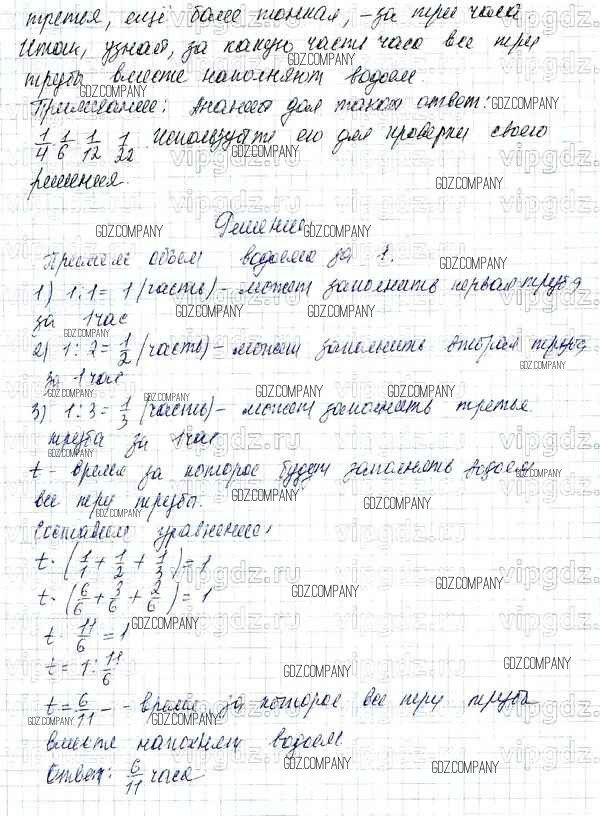 третья, ещё более тонкая, - за три часа
Итак, узнай, за какую часть часа все три
трубы вместе наполняют водоем.
Примечание: Анания дал такой ответ:
1/4 1/6 1/12 1/22. Используйте его для проверки своего
решения.
Решение:
Примем объем водоема за 1.
1) 1:1 = 1 (часть) - может заполнить первая труба
за 1 час
2) 1:2 = 1/2 (часть) - может заполнить вторая труба
за 1 час
3) 1:3 = 1/3 (часть) - может заполнить третья
труба за 1 час
t - время за которое будут заполнять водоем
все три трубы.
Составим уравнение:
t · (1/1 + 1/2 + 1/3) = 1
t · (6/6 + 3/6 + 2/6) = 1
t · 11/6 = 1
t = 1 : 11/6
t = 6/11 - время за которое все три трубы
вместе наполнят водоем
Ответ: 6/11 часа